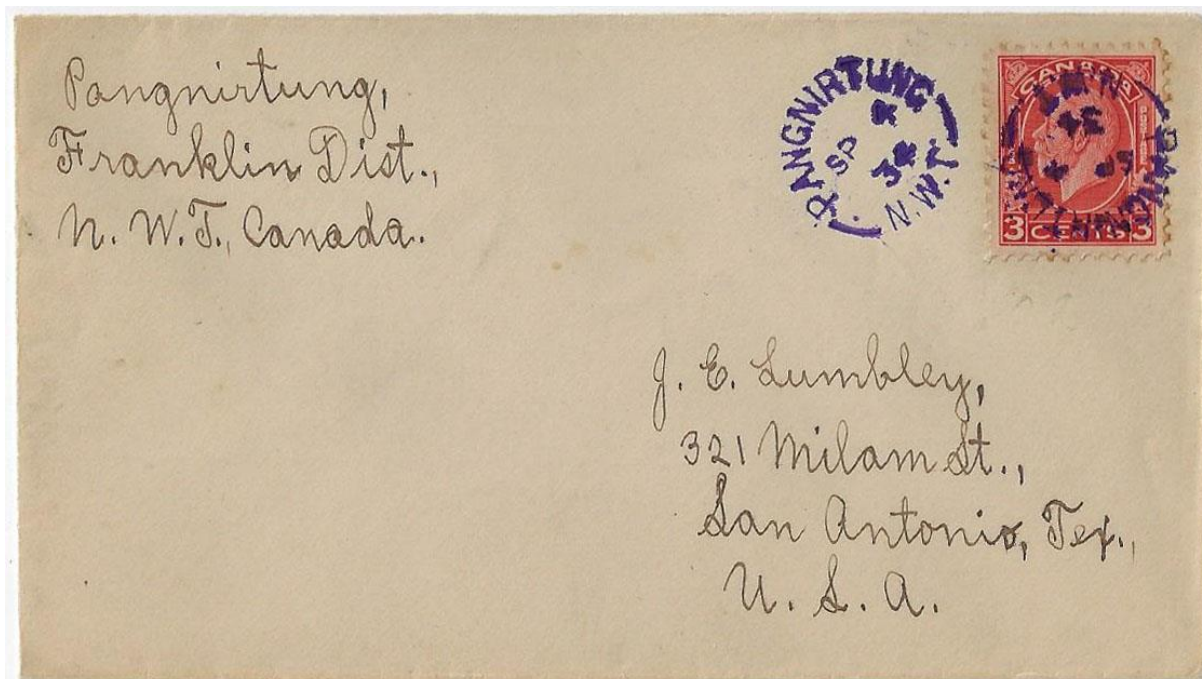 Pangnirtung,
Franklin Dist.,
N. W. T., Canada.
PANGNIRTUNG
SP 4
34
N.W.T.
CANADA
3 CENTS 3
J. E. Lumbley,
321 Milam St.,
San Antonio, Tex.,
U. S. A.